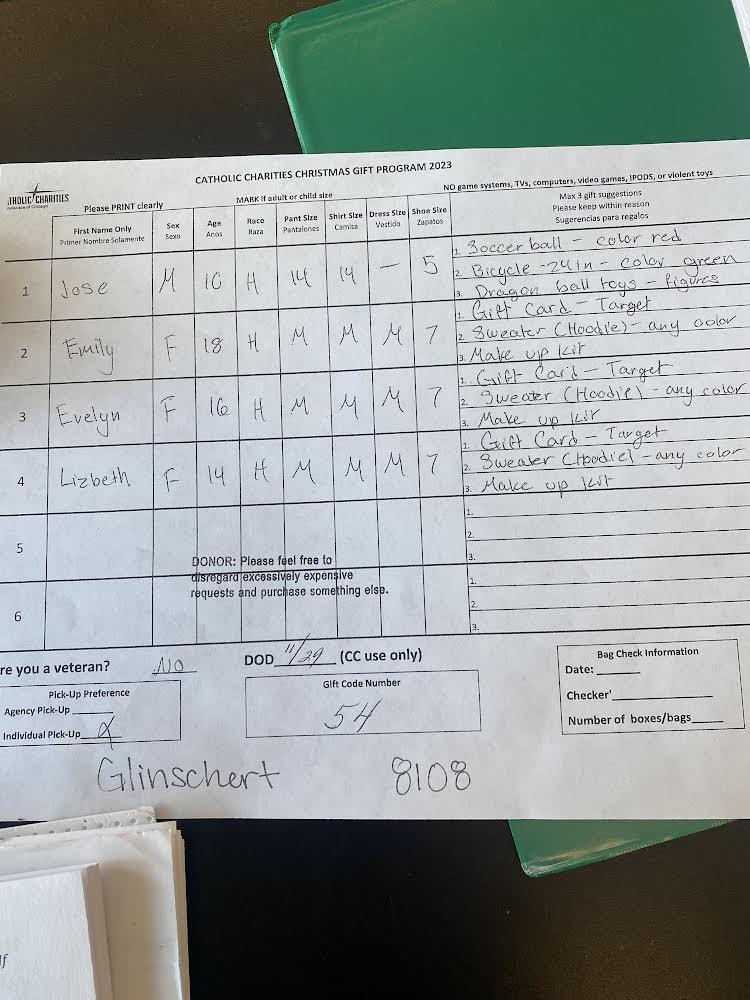 CATHOLIC CHARITIES CHRISTMAS GIFT PROGRAM 2023
THOLIC CHARITIES
Please PRINT clearly
MARK if adult or child size
NO game systems, TVs, computers, video games, IPODS, or violent toys
First Name Only
Primer Nombre Solamente
Sex
Sexo
Age
Anos
Race
Raza
Pant Size
Pantalones
Shirt Size
Camisa
Dress Size
Vestido
Shoe Size
Zapatos
Max 3 gift suggestions
Please keep within reason
Sugerencias para regalos
1 Jose M 10 H 14 14 — 5
1. Soccer ball - color red
2. Bicycle - 24 in - color green
3. Dragon ball toys - figures
2 Emily F 18 H M M M 7
1. Gift Card - Target
2. Sweater (Hoodie) - any color
3. Make up kit
3 Evelyn F 16 H M M M 7
1. Gift Card - Target
2. Sweater (Hoodie) - any color
3. Make up kit
4 Lizbeth F 14 H M M M 7
1. Gift Card - Target
2. Sweater (Hoodie) - any color
3. Make up kit
5
1.
2.
3.
6
1.
2.
3.
DONOR: Please feel free to
disregard excessively expensive
requests and purchase something else.
re you a veteran? NO
DOD 11/29 (CC use only)
Pick-Up Preference
Agency Pick-Up
Individual Pick-Up X
Gift Code Number
54
Bag Check Information
Date:
Checker'
Number of boxes/bags
Glinschert 8108